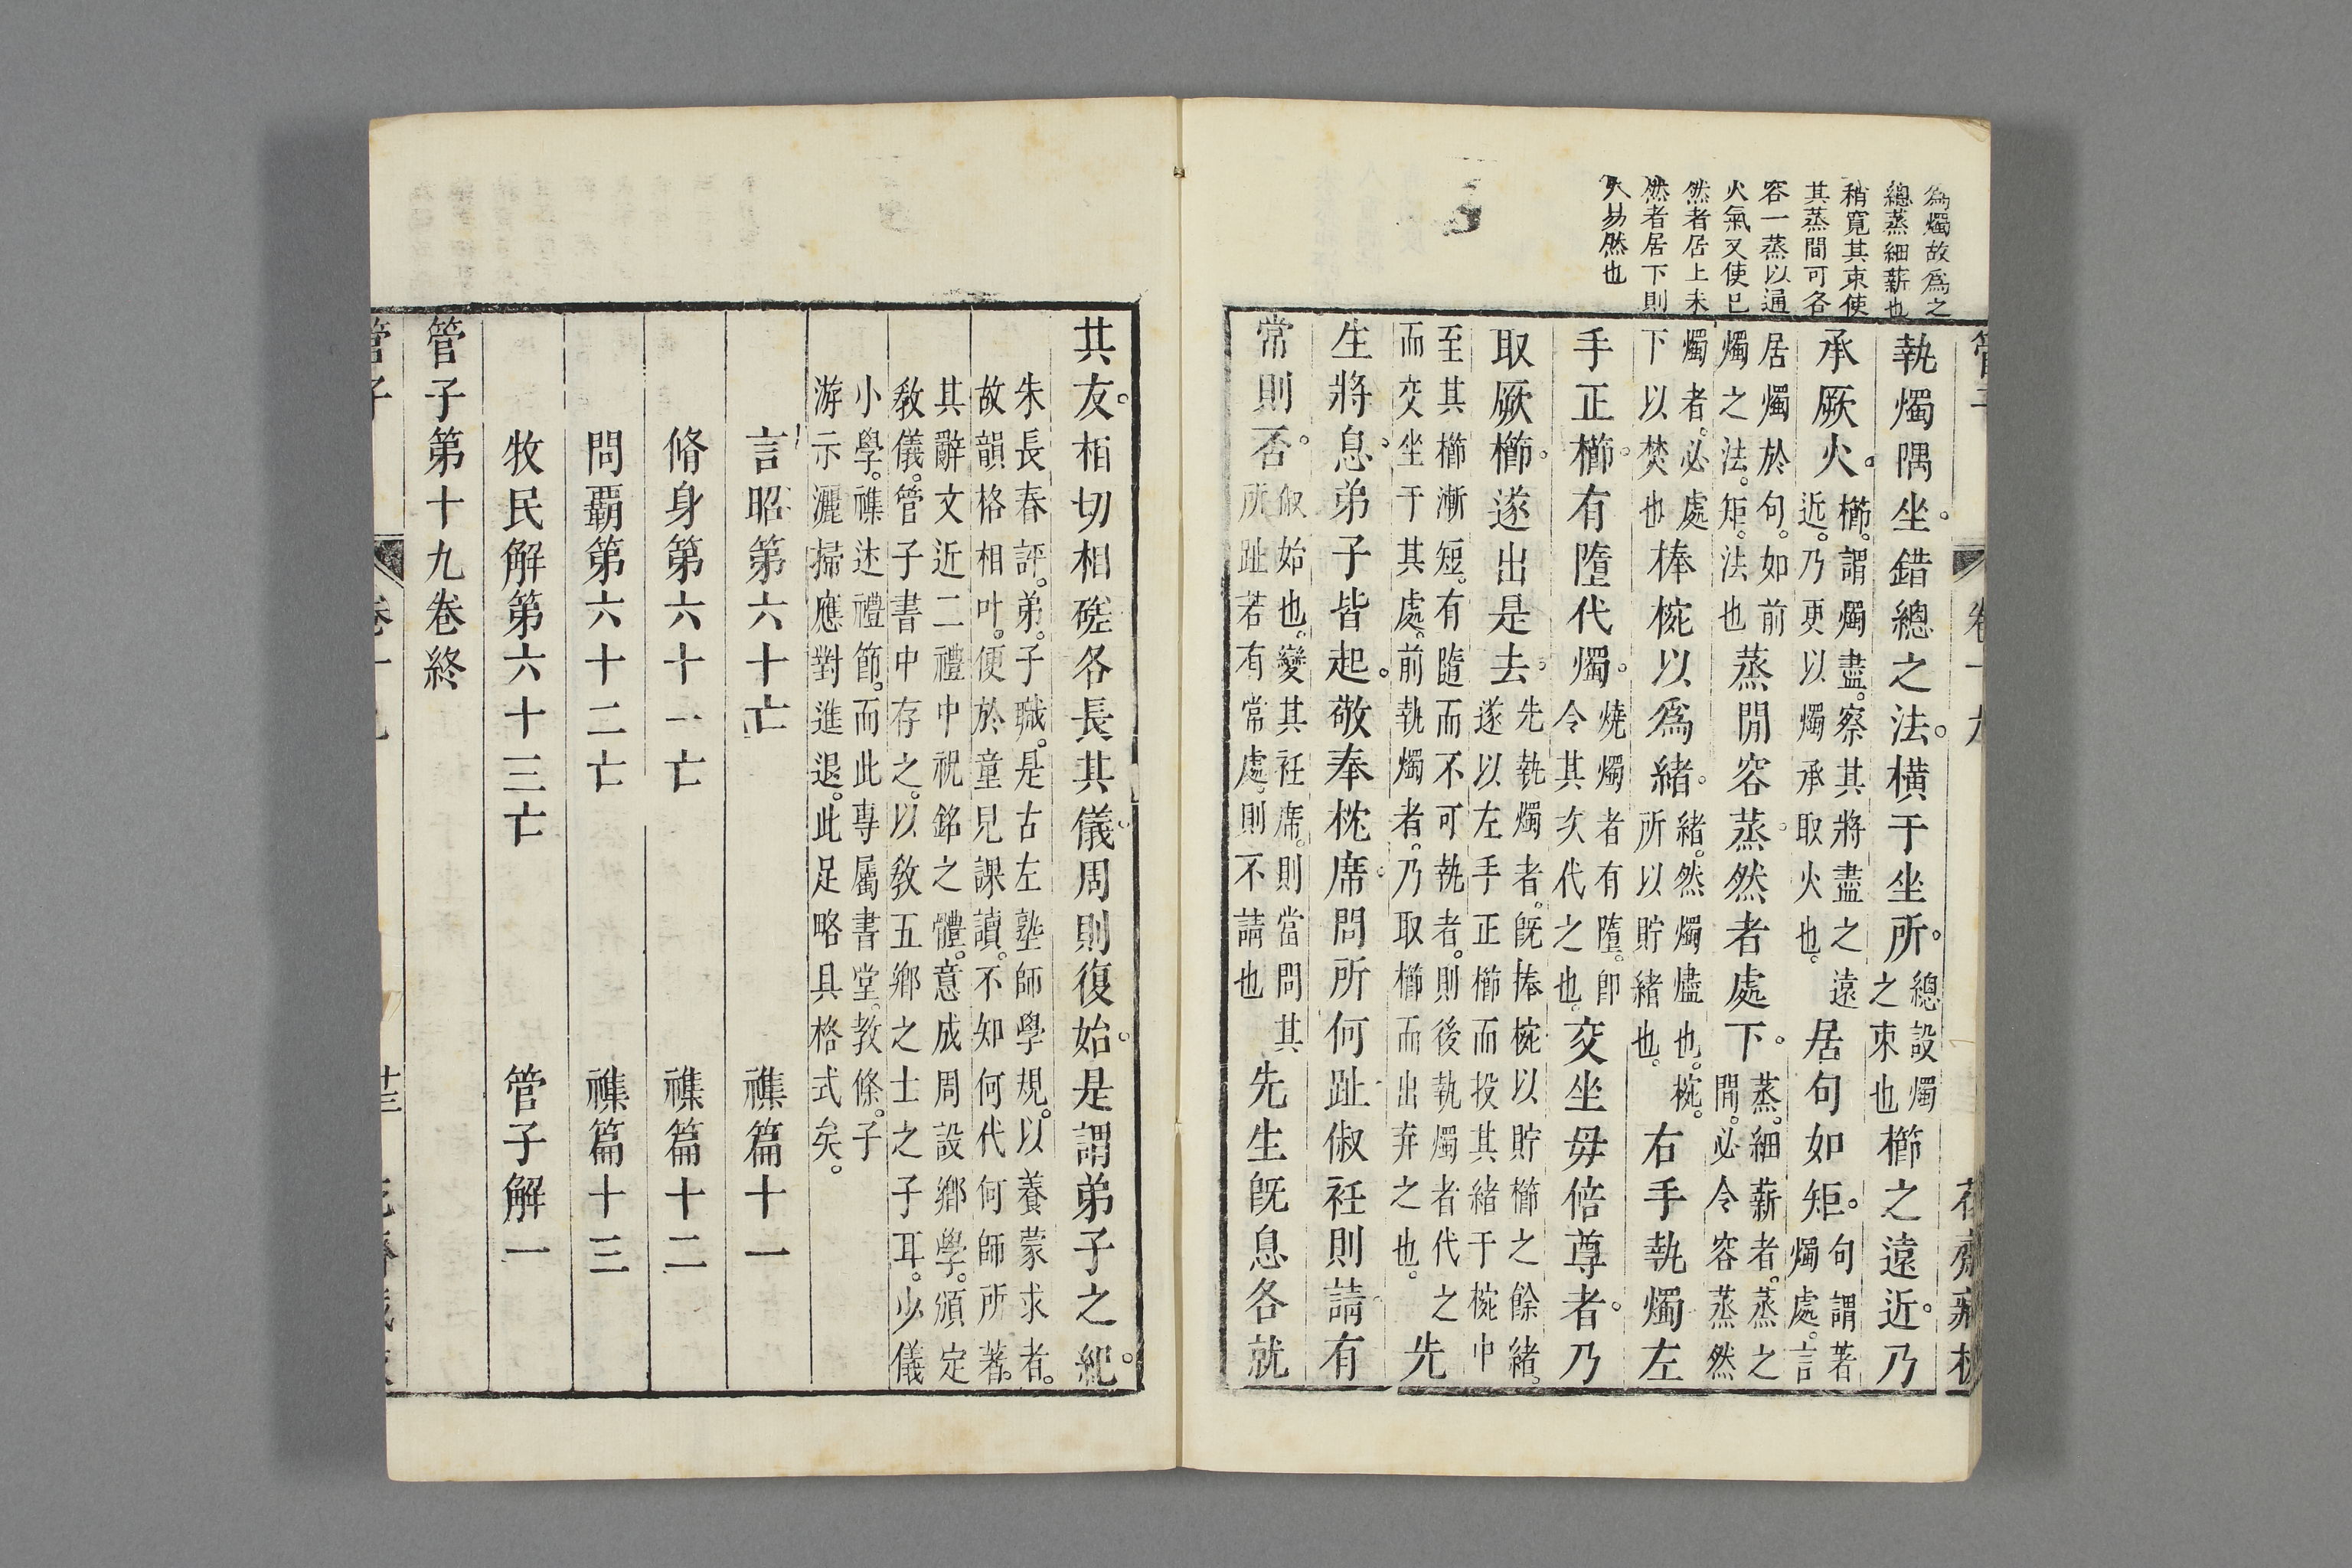 為燭故爲之
總蒸細薪也
稍寬其束使
其蒸間可各
容一蒸以通
火氣又使已
然者居上未
然者居下則
火易然也
執燭隅坐。錯總之法。橫于坐所。總設燭之束也櫛之遠近。乃
承厥火。櫛。謂燭盡。察其將盡之遠近。乃更以燭承取火也。居句如矩。句謂著燭處。言
居燭於句。如前燭之法。矩。法也蒸閒容蒸。然者處下。蒸。細薪者。蒸之閒。必令容蒸然
燭者。必處下以焚也捧椀以爲緒。緒。然燭燼也。椀。所以貯緒也。右手執燭左
手正櫛。有墮代燭。燒燭者有墮。即令其次代之也。交坐毋倍尊者。乃
取厥櫛。遂出是去。先執燭者。既捧椀以貯櫛之餘緒。遂以左手正櫛而投其緒于椀中
至其櫛漸短。有隨而不可執者。則後執燭者代之而交坐于其處。前執燭者。乃取櫛而出弃之也。先
生將息。弟子皆起。敬奉枕席。問所何趾俶衽則請有
常則否。俶始也。變其衽席。則當問其所趾若有常處。則不請也先生既息各就
其友。相切相磋各長其儀。周則復始。是謂弟子之紀。
朱長春評。弟。子職。是古左塾師學規。以養蒙求者。
故韻格相叶。便於童兒課讀。不知何代何師所著。
其辭文近二禮中祝銘之體。意成周設鄉學。頒定
教儀。管子書中存之。以教五鄉之士之子耳。少儀
小學。襍述禮節。而此專屬書堂。教條。子
游示灑掃應對進退。此足略具格式矣。
言昭第六十亡 襍篇十一
脩身第六十一亡 襍篇十二
問霸第六十二亡 襍篇十三
牧民解第六十三亡 管子解一
管子第十九卷終
管子 卷十九 十三